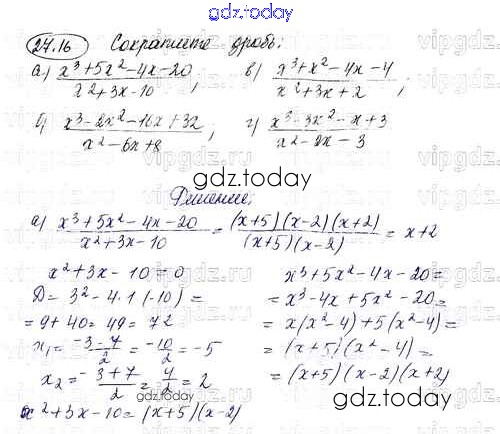 gdz.today
27.16 Сократите дробь:
а) x³+5x²-4x-20 / x²+3x-10; в) x³+x²-4x-4 / x²+3x+2;
б) x³-2x²-16x+32 / x²-6x+8; г) x³-3x²-x+3 / x²-2x-3
gdz.today
Решение:
а) x³+5x²-4x-20 / x²+3x-10 = (x+5)(x-2)(x+2) / (x+5)(x-2) = x+2
x²+3x-10=0
D=3²-4·1(-10)=
=9+40=49=7²
x₁=-3-7/2=-10/2=-5
x₂=-3+7/2=4/2=2
x²+3x-10=(x+5)(x-2)
x³+5x²-4x-20=
=x³-4x+5x²-20=
=x(x²-4)+5(x²-4)=
=(x+5)(x²-4)=
=(x+5)(x-2)(x+2)
gdz.today